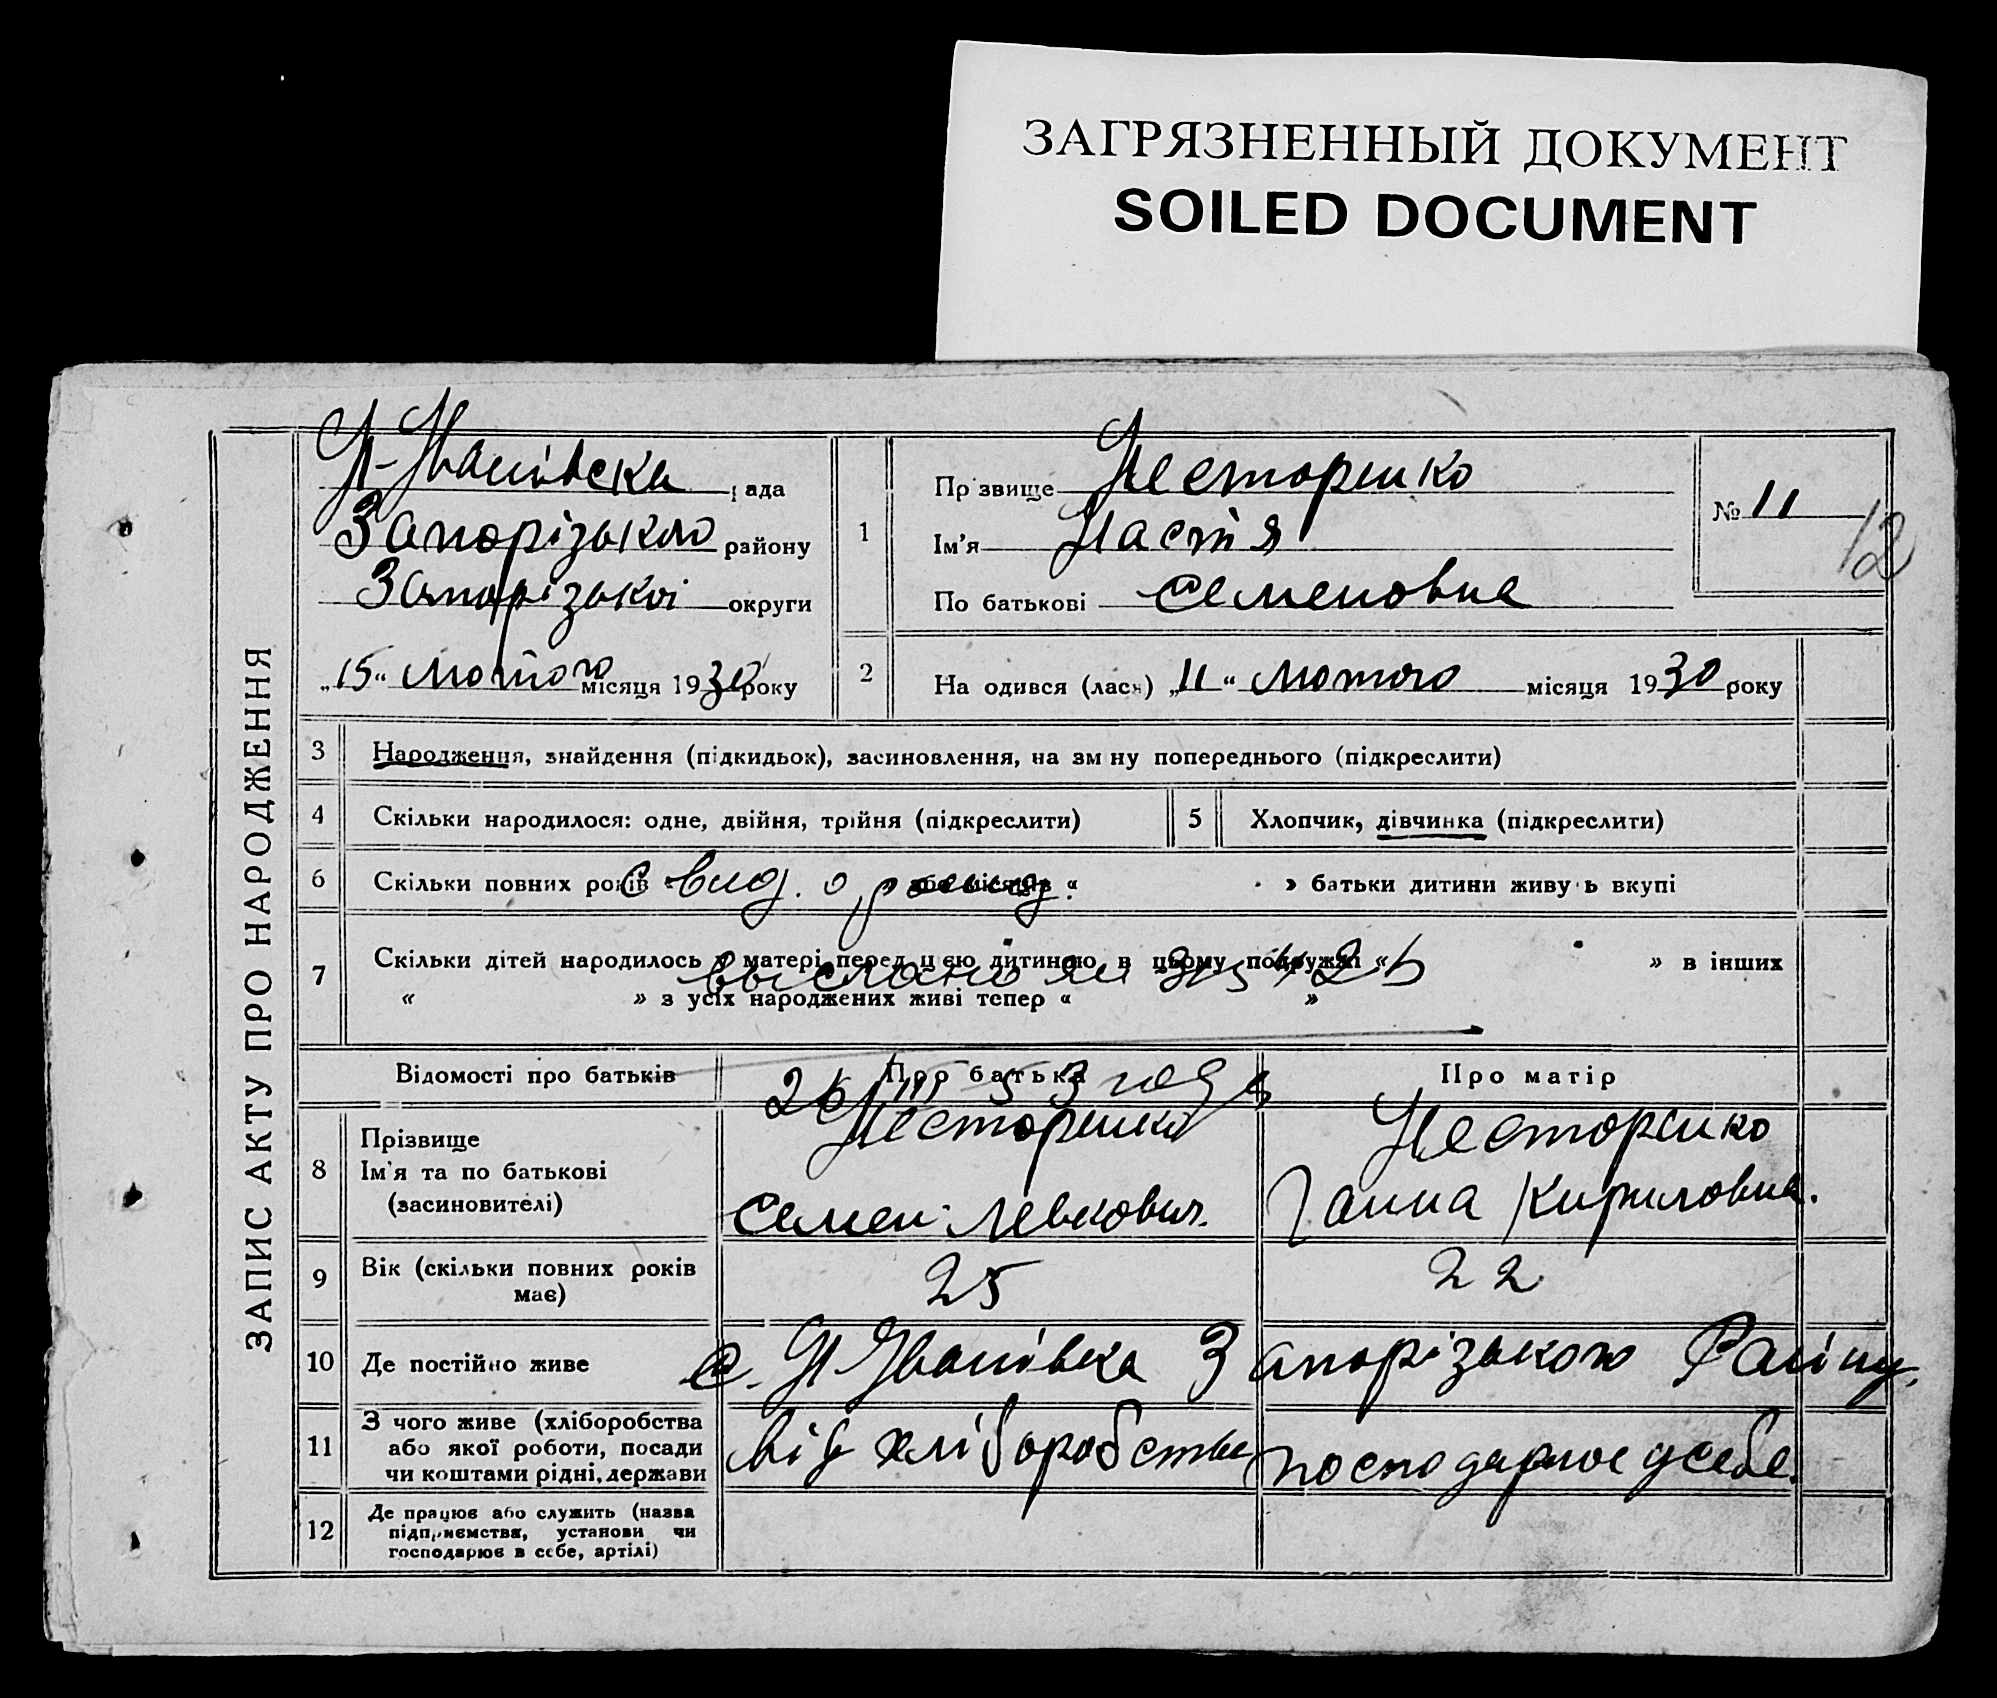 ЗАГРЯЗНЕННЫЙ ДОКУМЕНТ
SOILED DOCUMENT
ЗАПИС АКТУ ПРО НАРОДЖЕННЯ
Н-Іванівска рада
Запорізького району
Запорізької округи
„15“ лютого місяця 1930 року
1
Прізвище Несторенко
Ім'я Настя
По батькові Семеновна
№ 11
12
2
На одився (лася) „11“ лютого місяця 1930 року
3 Народження, знайдення (підкидьок), засиновлення, на зм ну попереднього (підкреслити)
4 Скільки народилося: одне, двійня, трійня (підкреслити)
5 Хлопчик, дівчинка (підкреслити)
6 Скільки повних років « або місяців « » батьки дитини живуть вкупі
С вид. о рожд.
7 Скільки дітей народилось у матері перед цею дитиною в цьому подружжі « » в інших
« » з усіх народжених живі тепер « »
выслано
Відомості про батьків
Про батька
Про матір
26/III 53 года
8 Прізвище
Ім'я та по батькові
(засиновителі)
Несторенко
Семен Левкович.
Несторенко
Ганна Кириловна.
9 Вік (скільки повних років
має)
25
22
10 Де постійно живе
с. Н Іванівка Запорізького Району.
11 З чого живе (хліборобства
або якої роботи, посади
чи коштами рідні, держави
від хліборобства
господарює у себе.
12 Де працює або служить (назва
підприємства, установи чи
господарює в себе, артілі)